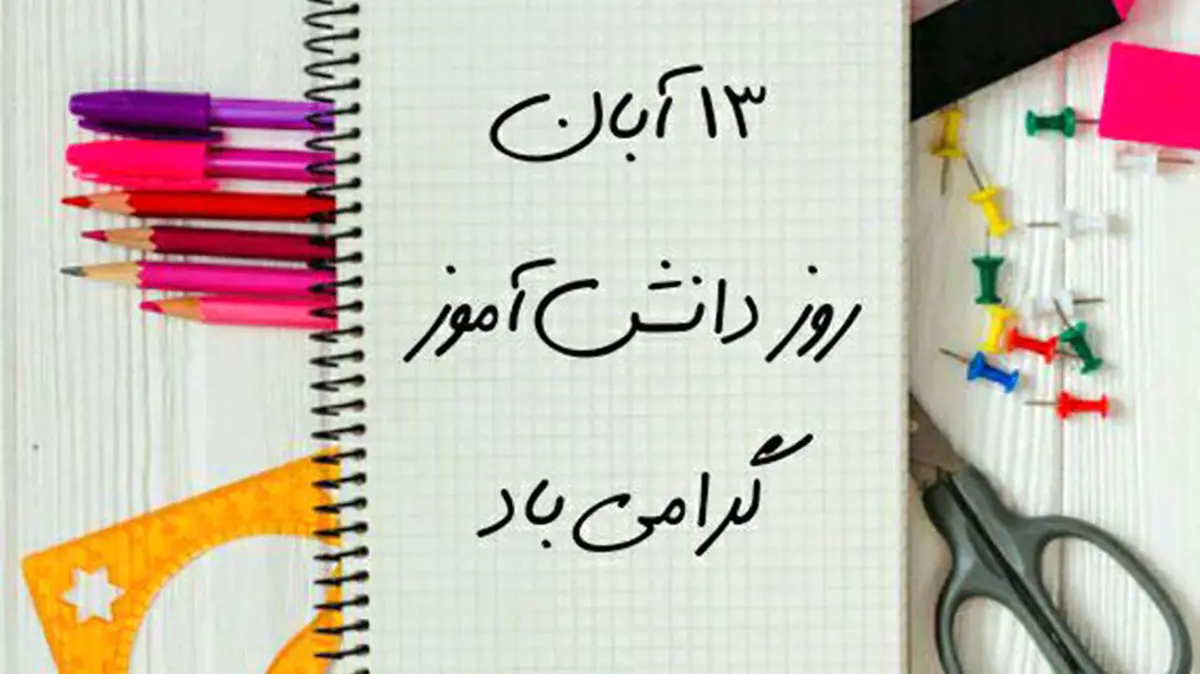 ۱۳ آبان
روز دانش آموز
گرامی باد